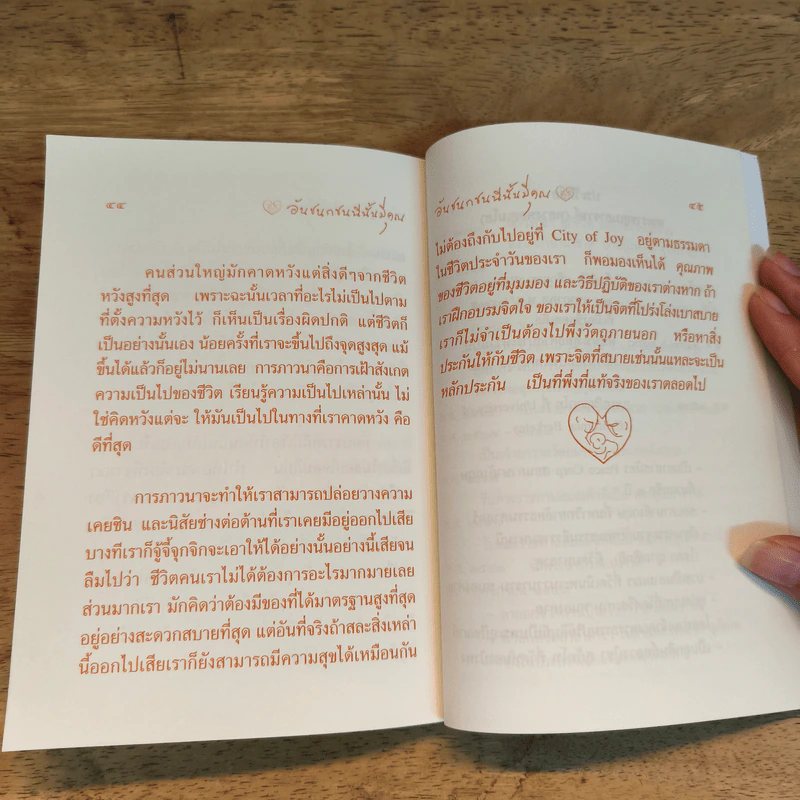 ๔๔
อันชนกชนนีนั้นมีคุณ
คนส่วนใหญ่มักคาดหวังแต่สิ่งดีๆจากชีวิต
หวังสูงที่สุด เพราะฉะนั้นเวลาที่อะไรไม่เป็นไปตาม
ที่ตั้งความหวังไว้ ก็เห็นเป็นเรื่องผิดปกติ แต่ชีวิตก็
เป็นอย่างนั้นเอง น้อยครั้งที่เราจะขึ้นไปถึงจุดสูงสุด แม้
ขึ้นได้แล้วก็อยู่ไม่นานเลย การภาวนาคือการเฝ้าสังเกต
ความเป็นไปของชีวิต เรียนรู้ความเป็นไปเหล่านั้น ไม่
ใช่คิดหวังแต่จะ ให้มันเป็นไปในทางที่เราคาดหวัง คือ
ดีที่สุด
การภาวนาจะทำให้เราสามารถปล่อยวางความ
เคยชิน และนิสัยช่างต่อต้านที่เราเคยมีอยู่ออกไปเสีย
บางทีเราก็จู้จี้จุกจิกจะเอาให้ได้อย่างนั้นอย่างนี้เสียจน
ลืมไปว่า ชีวิตคนเราไม่ได้ต้องการอะไรมากมายเลย
ส่วนมากเรา มักคิดว่าต้องมีของที่ได้มาตรฐานสูงที่สุด
อยู่อย่างสะดวกสบายที่สุด แต่อันที่จริงถ้าสละสิ่งเหล่า
นี้ออกไปเสียเราก็ยังสามารถมีความสุขได้เหมือนกัน
อันชนกชนนีนั้นมีคุณ
๔๕
ไม่ต้องถึงกับไปอยู่ที่ City of Joy อยู่ตามธรรมดา
ในชีวิตประจำวันของเรา ก็พอมองเห็นได้ คุณภาพ
ของชีวิตอยู่ที่มุมมอง และวิธีปฏิบัติของเราต่างหาก ถ้า
เราฝึกอบรมจิตใจ ของเราให้เป็นจิตที่โปร่งโล่งเบาสบาย
เราก็ไม่จำเป็นต้องไปพึ่งวัตถุภายนอก หรือหาสิ่ง
ประกันให้กับชีวิต เพราะจิตที่สบายเช่นนั้นแหละจะเป็น
หลักประกัน เป็นที่พึ่งที่แท้จริงของเราตลอดไป